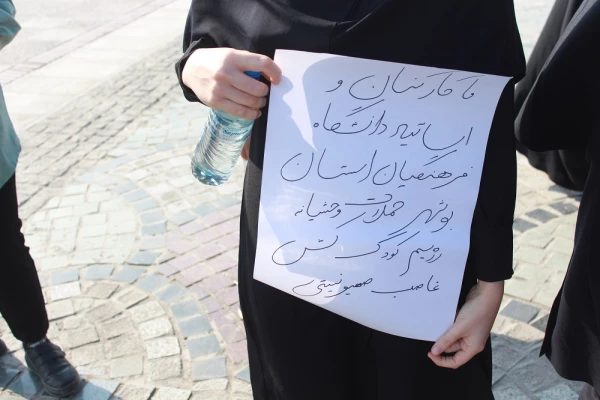 ما کارکنان و
اساتید دانشگاه
فرهنگیان استان
بوشهر حملات وحشیانه
رژیم کودک کش
غاصب صهیونیستی